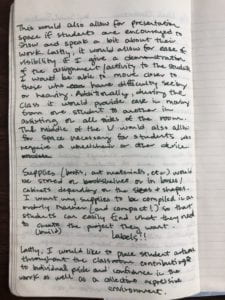 This would also allow for presentation
space if students are encouraged to
show and speak a bit about their
work. Lastly, it would allow for ease of
visibility if I give a demonstration
I would be able to move closer to
those who have difficulty seeing
or hearing. Additionally, during the
class it would provide ease in moving
from one student to another in
assisting on all sides of the room.
The middle of the U would also allow
for space necessary for students who
require a wheelchair or other device
Supplies (books, art materials, etc.) would
be stored on bookshelves or in boxes/
cabinets depending on the sizes & shapes.
I want my supplies to be compiled in an
inviting manner (and compact!) so that
students can easily find what they need
to create the project they want.
(build) Labels!!
Lastly, I would like to place student artwork
throughout the classroom contributing
to individual pride and confidence in the
work as well as a collective expressive
environment.